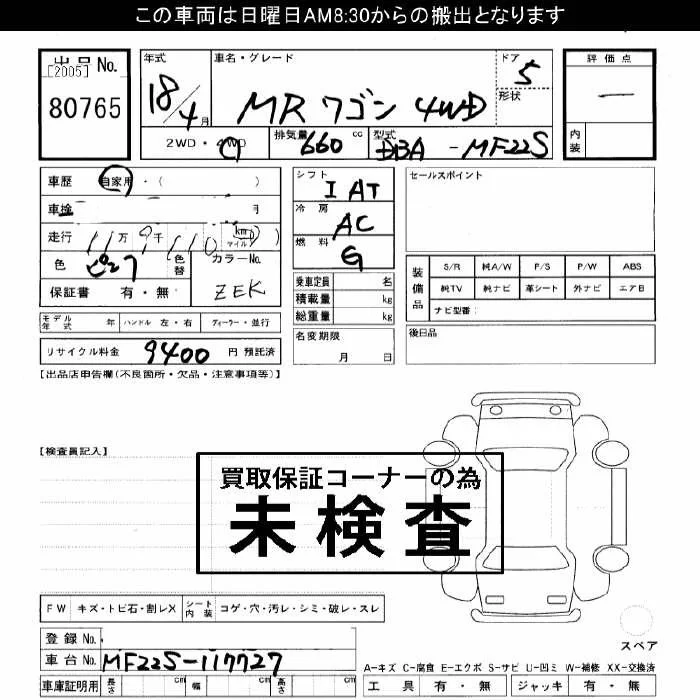 この車両は日曜日AM8:30からの搬出となります
出品No.
[2005]
80765
年式
18/4月
車名・グレード
MR ワゴン 4WD
ドア 5
形状
評価点
—
内装
2WD・4WD
排気量 660 cc
型式 DBA - MF22S
車歴 自家用・( )
車検 月
走行 11万9千110 (km マイル)
色 ピンク
色替
カラーNo.
ZEK
保証書 有・無
シフト I AT
冷房 AC
燃料 G
乗車定員 名
積載量 kg
総重量 kg
名変期限
月 日
セールスポイント
装備品
S/R 純A/W P/S P/W ABS
純TV 純ナビ 革シート 外ナビ エアB
ナビ型番:
後日品
モデル年式 年 ハンドル 左・右 ディーラー・並行
リサイクル料金 9400 円 預託済
【出品店申告欄(不良箇所・欠品・注意事項等)】
【検査員記入】
買取保証コーナーの為
未検査
FW キズ・トビ石・割レX シート内装 コゲ・穴・汚レ・シミ・破レ・スレ
登録No.
車台No. MF22S-117727
車庫証明用 長さ cm 幅 cm 高さ cm
スペア
A-キズ C-腐食 E-エクボ S-サビ U-凹ミ W-補修 XX-交換済
工具 有・無 ジャッキ 有・無